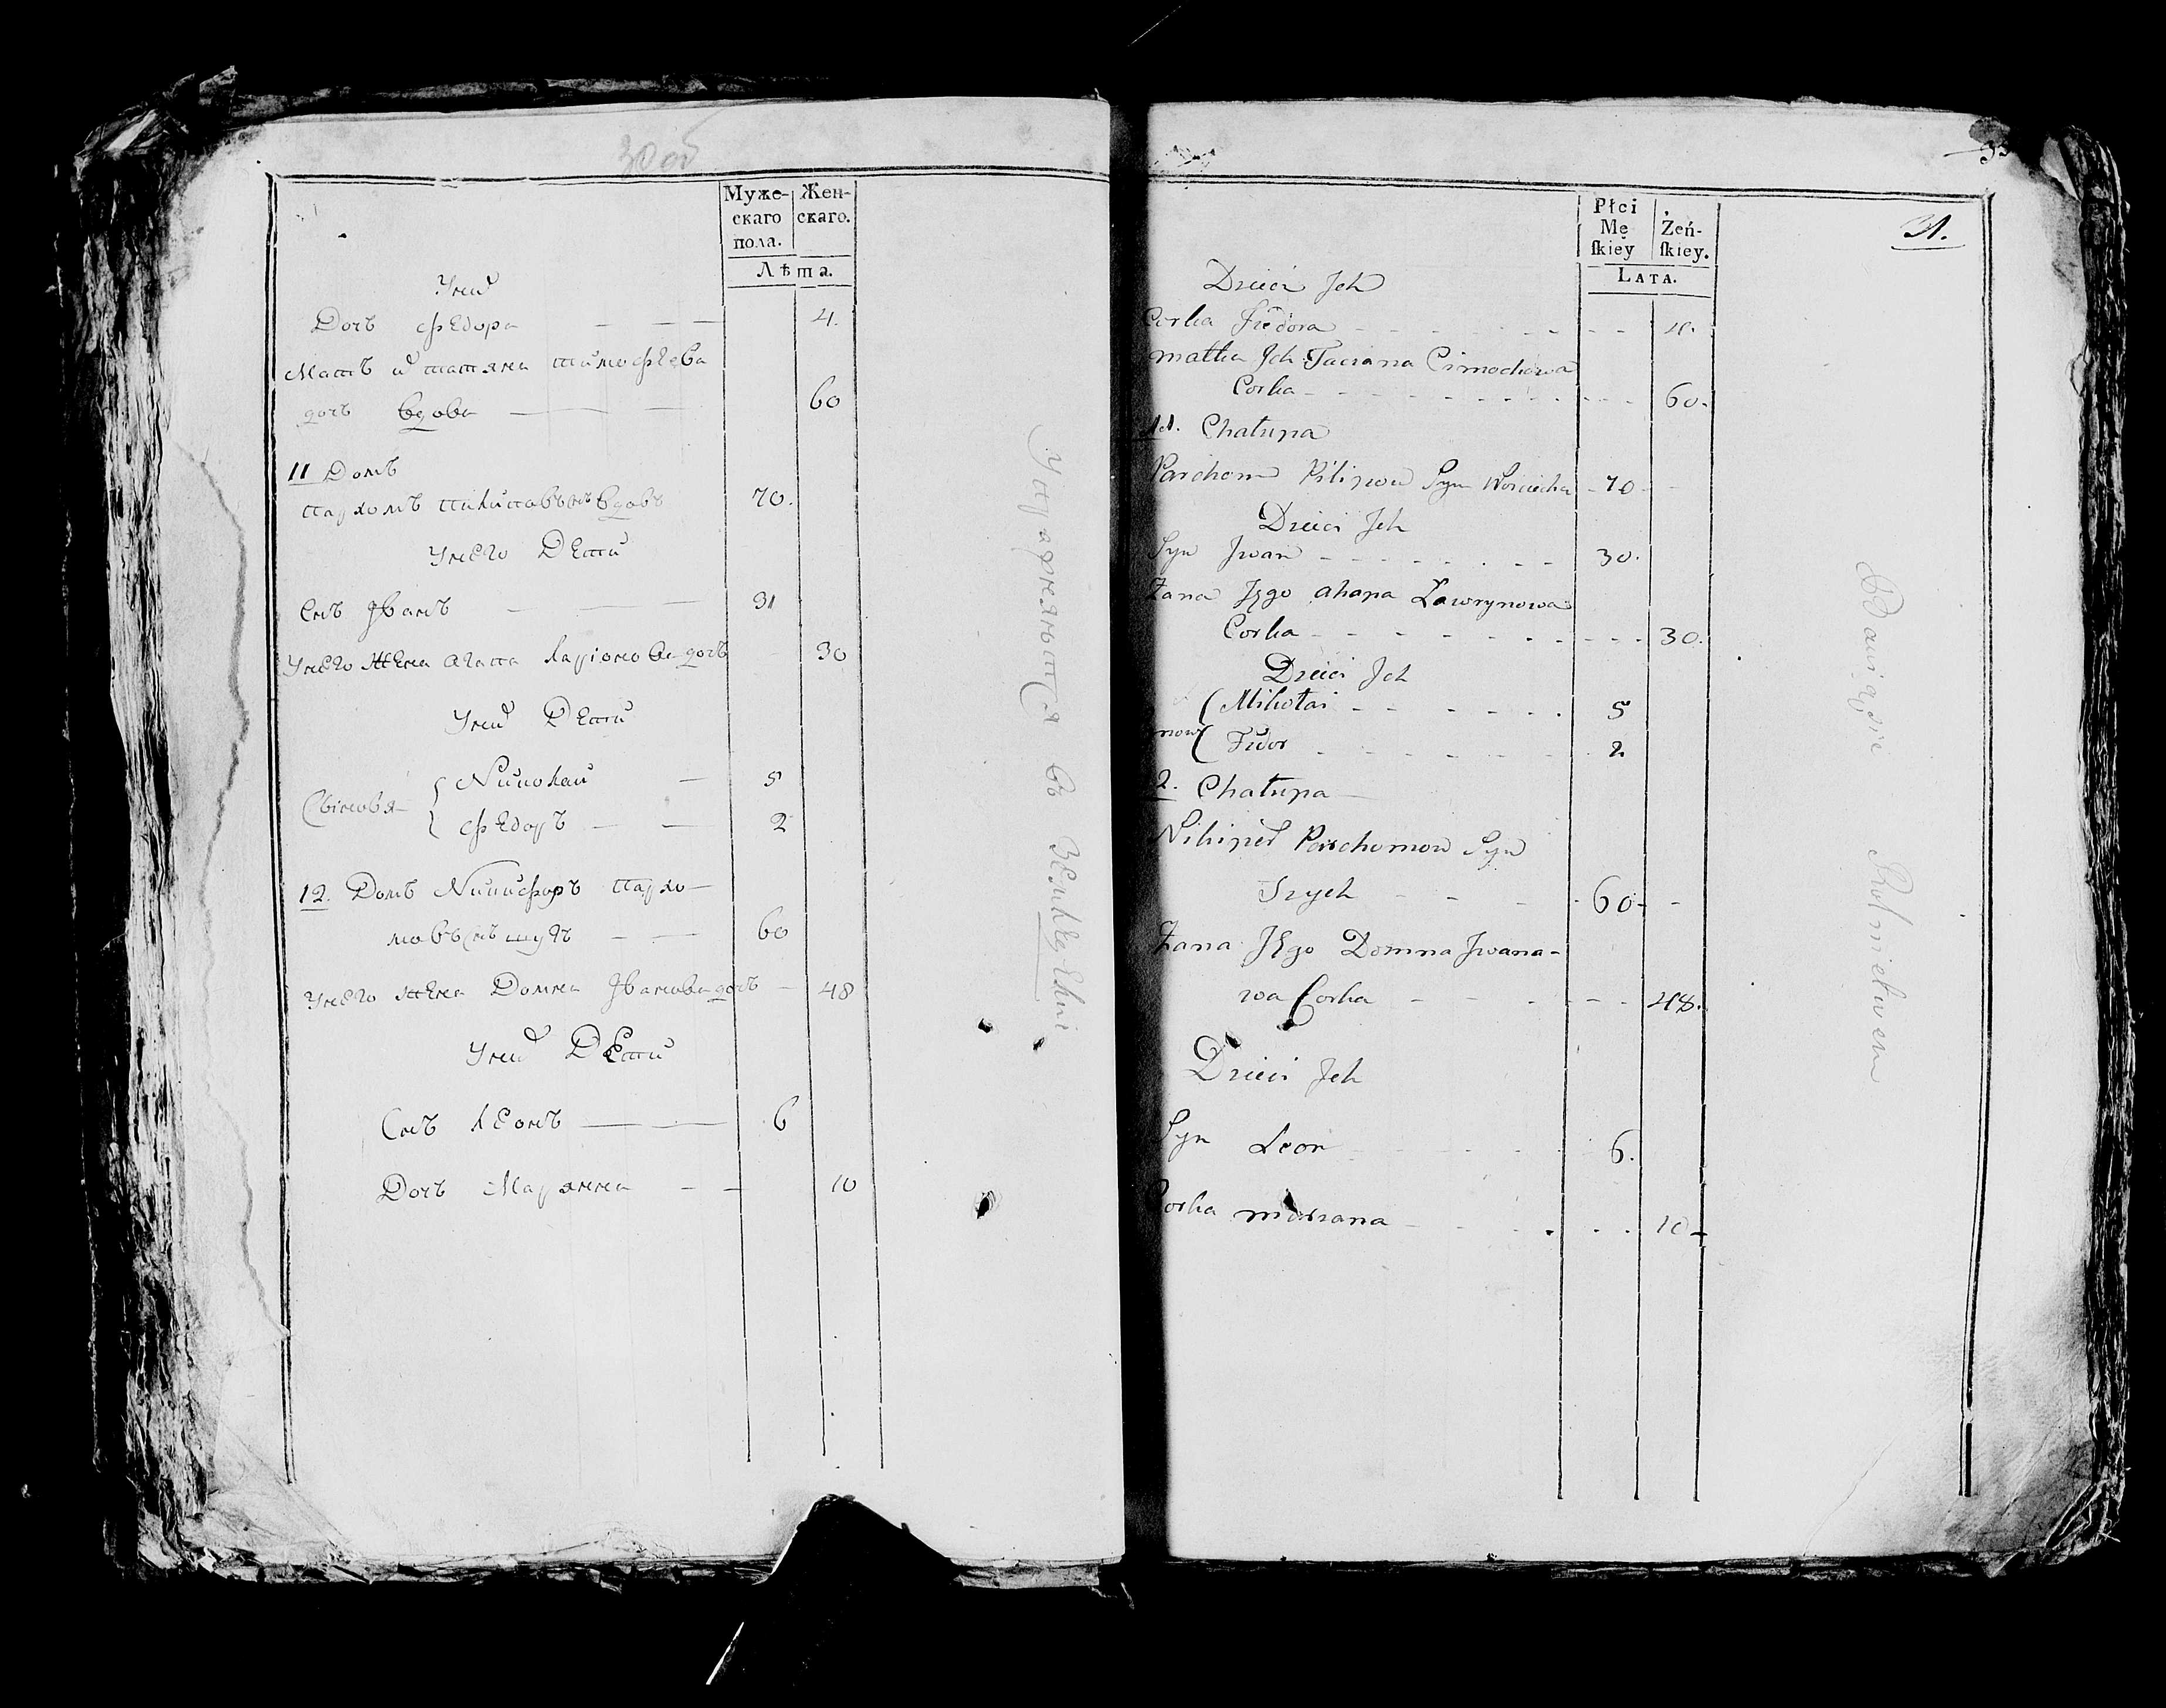 30 об
Муже-
скаго
пола.
Жен-
скаго.
Лѣта.
У них
Дочь Федора — — — 4.
Мать и татяна тимофеева
дочь вдова — — 60
11 Домъ
пархомъ пилиповъ снъ вдовъ 70.
У него Дети
Снъ Иванъ — — — 31
У него жена агапа лариоnова дочь 30
У них Дети
Сыновя
Николай — 5
Федоръ — — 2
12. Домъ Никифоръ пархо-
мовъ снъ — — 60
У него жена Домна Иванова дочь — 48
У них Дети
Снъ леонъ — — 6
Дочь Марянна — — 10
Упражняются въ
Płci
Mę
ſkiey
Żeń-
ſkiey.
LATA.
31.
Dzieci Jch
Corka Fiedora - - - - 4.
matka Jch Taciana Cimochowa
Corka - - - - 60.
11. Chałupa
Parchom Pilipow Syn - 70 -
Dzieci Jch
Syn Jwan - - - - 30.
Żana Jego ahapa Ławrynowa
Corka - - - - 30.
Dzieci Jch
Mikołai - - - - 5
nowi
Fiedor - - - - 2
2. Chałupa
Nikipier Parchomow Syn
- - - 60 - -
Żana Jego Domna Jwana-
wa Corka - - - - 48.
Dzieci Jch
Syn Leon - - - - 6.
Corka mariana - - - - 10 -
Bawią się Rolnictwem